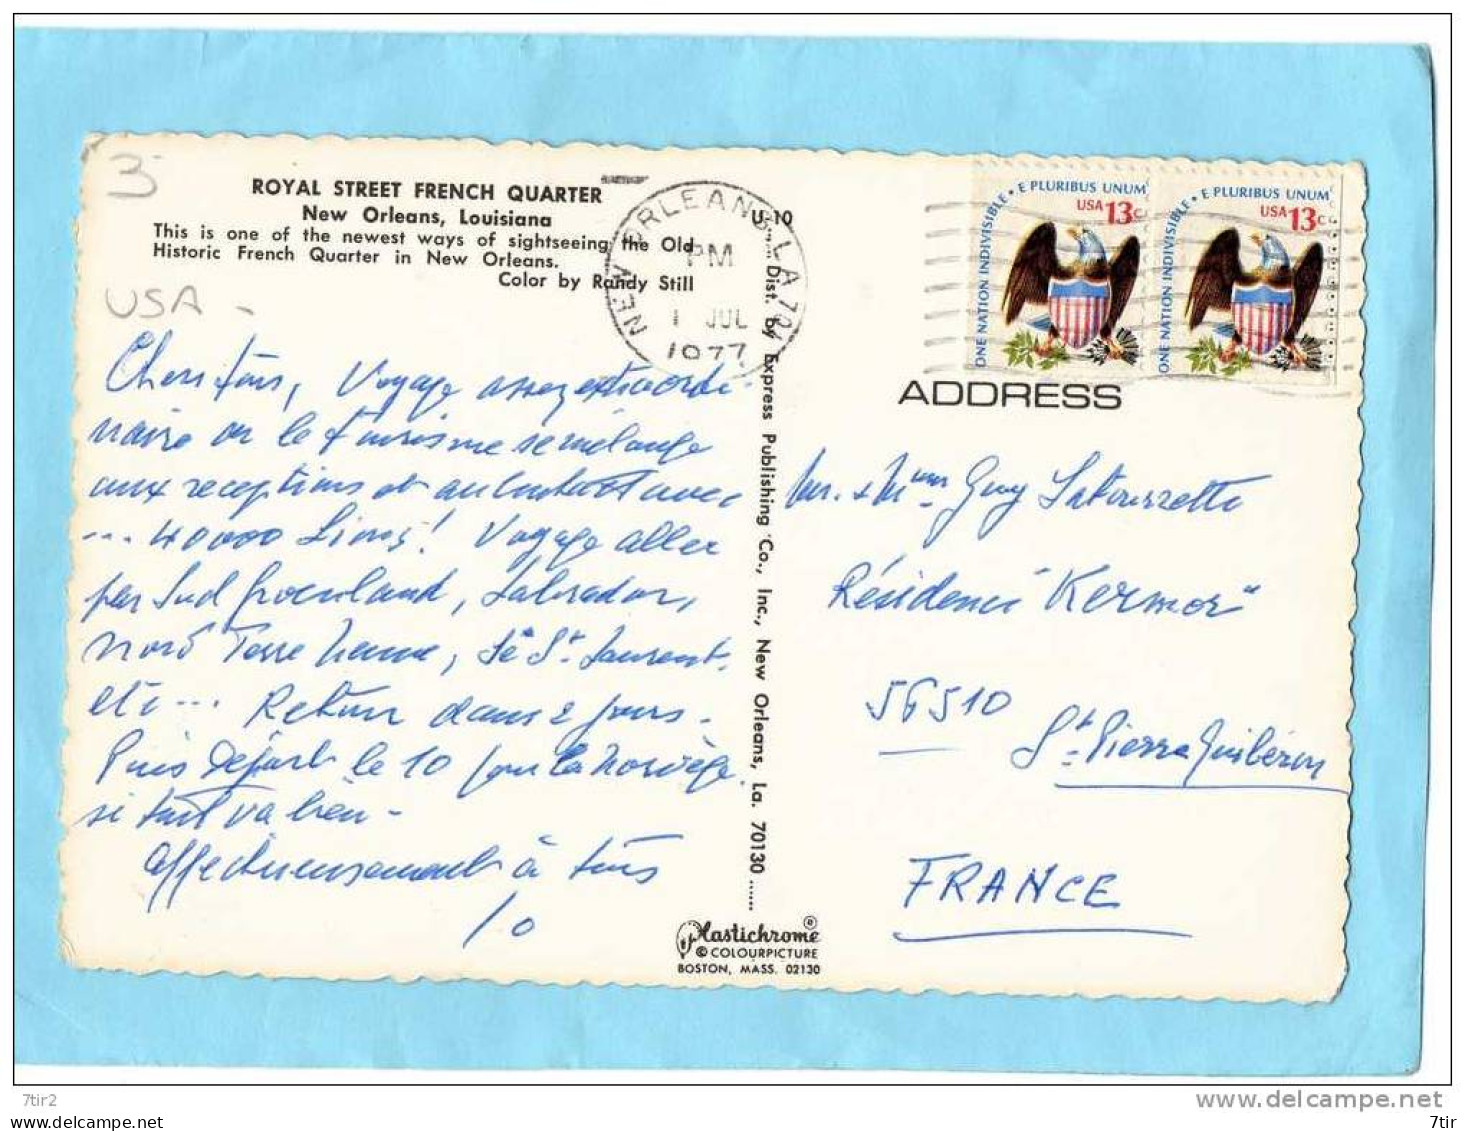 3
ROYAL STREET FRENCH QUARTER
New Orleans, Louisiana
This is one of the newest ways of sightseeing the Old
Historic French Quarter in New Orleans.
Color by Randy Still
USA -
Chers tous, Voyage assez extraordi-
naire où le tourisme se mélange
aux réceptions et au contact avec
... 40000 Lions! Voyage aller
par Sud Groenland, Labrador,
Nord Terre Neuve, St Laurent.
etc... Retour dans 2 jours.
Puis Départ le 10 pour la Norvège
si tout va bien -
affectueusement à tous
NEW ORLEANS LA 701
PM
1 JUL
1977
U-10
Dist. by Express Publishing Co., Inc., New Orleans, La. 70130 ......
Plastichrome ®
© COLOURPICTURE
BOSTON, MASS. 02130
ONE NATION INDIVISIBLE • E PLURIBUS UNUM
USA 13c
ONE NATION INDIVISIBLE • E PLURIBUS UNUM
USA 13c
ADDRESS
Mr. & Mme Guy
Résidence "Kermor"
56510
St. Pierre Quibéron
FRANCE
7tir2
delcampe.net
7tir